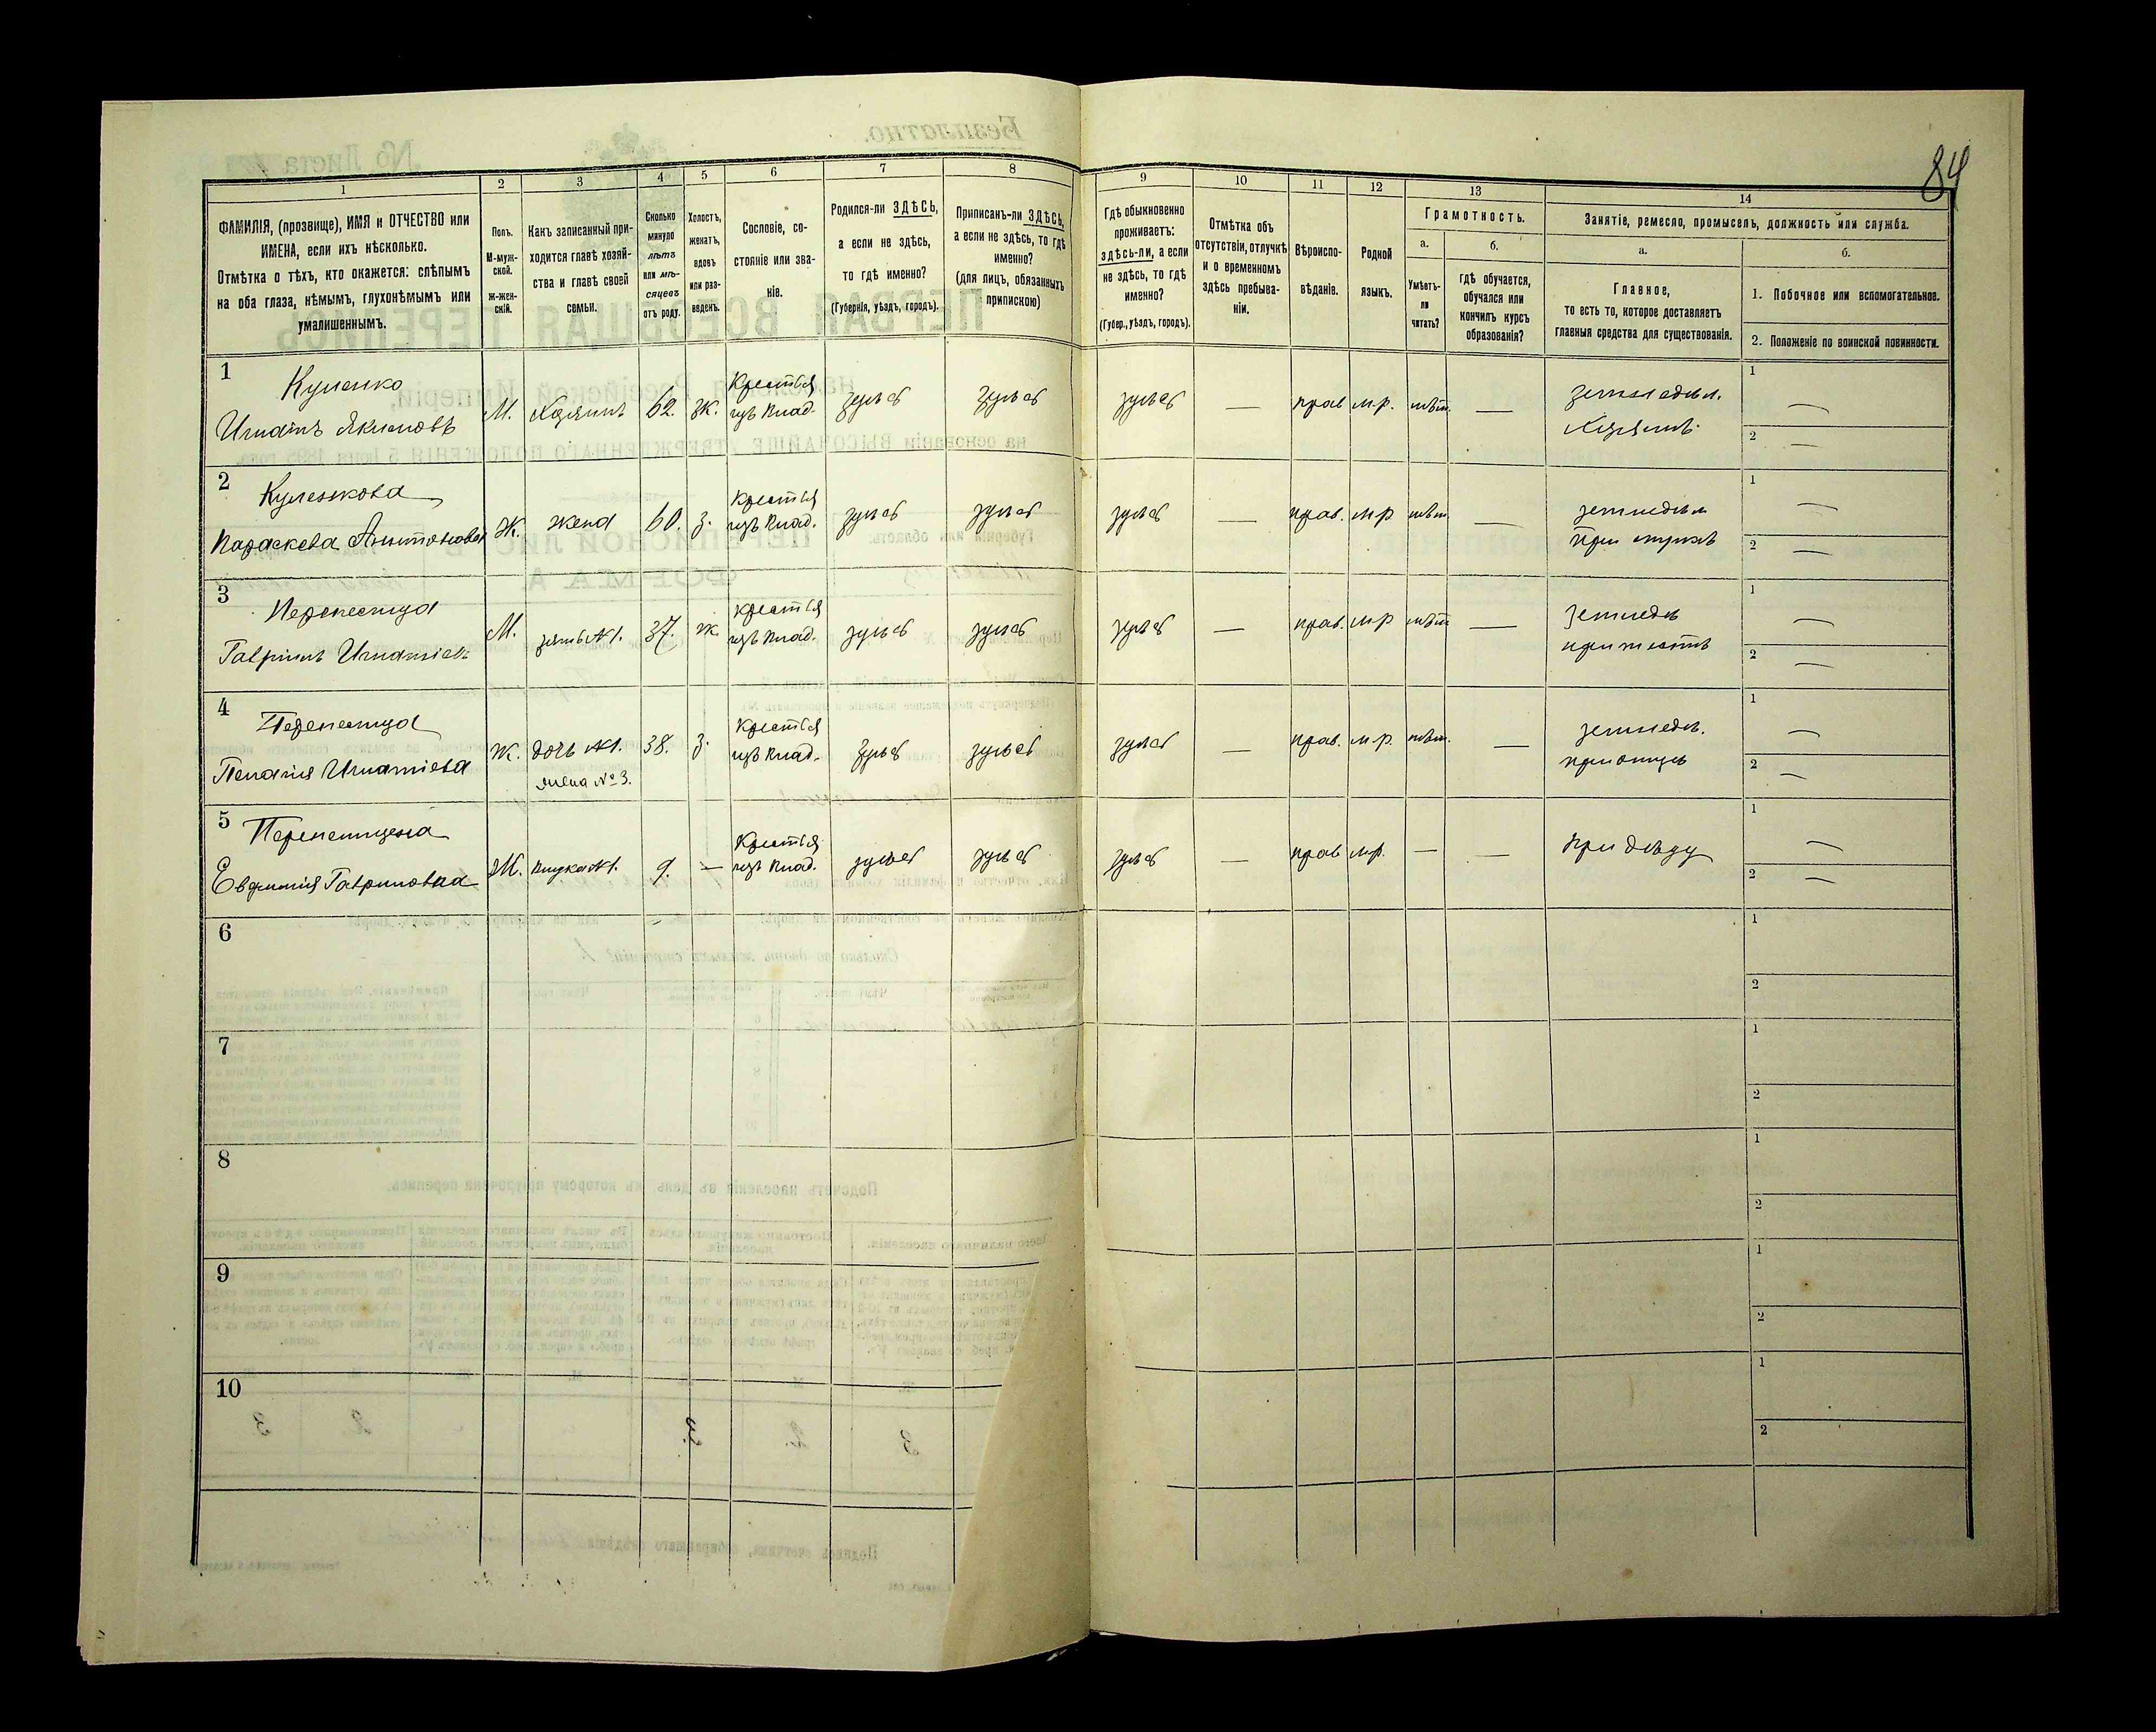 84
1 2 3 4 5 6 7 8 9 10 11 12 13 14
ФАМИЛІЯ, (прозвище), ИМЯ и ОТЧЕСТВО или
ИМЕНА, если ихъ нѣсколько.
Отмѣтка о тѣхъ, кто окажется: слѣпымъ
на оба глаза, нѣмымъ, глухонѣмымъ или
умалишеннымъ.
Полъ.
М-муж-
ской.
Ж-жен-
скій.
Какъ записанный при-
ходится главѣ хозяй-
ства и главѣ своей
семьи.
Сколько
минуло
лѣтъ
или мѣ-
сяцевъ
отъ роду.
Холостъ,
женатъ,
вдовъ
или раз-
веденъ.
Сословіе, со-
стояніе или зва-
ніе.
Родился-ли ЗДѢСЬ,
а если не здѣсь,
то гдѣ именно?
(Губернія, уѣздъ, городъ).
Приписанъ-ли ЗДѢСЬ,
а если не здѣсь, то гдѣ
именно?
(для лицъ, обязанныхъ
припискою)
Гдѣ обыкновенно
проживаетъ:
здѣсь-ли, а если
не здѣсь, то гдѣ
именно?
(Губер., уѣздъ, городъ).
Отмѣтка объ
отсутствіи, отлучкѣ
и о временномъ
здѣсь пребыва-
ніи.
Вѣроиспо-
вѣданіе.
Родной
языкъ.
Грамотность.
а.
Умѣетъ-
ли
читать?
б.
Гдѣ обучается,
обучался или
кончилъ курсъ
образованія?
Занятіе, ремесло, промыселъ, должность или служба.
а.
Главное,
то есть то, которое доставляетъ
главныя средства для существованія.
б.
1. Побочное или вспомогательное.
2. Положеніе по воинской повинности.
1
Куленко
Игнатъ Якимовъ
М. Хозяинъ 62. ж.
Крестья
изъ влад.
здѣсь здѣсь здѣсь — прав м.р. нѣт. —
земледѣл.
Хозяинъ
1 —
2 —
2
Куленкова
Параскева Антонова
Ж. жена 60. з.
Крестья
изъ влад.
здѣсь здѣсь здѣсь — прав. м.р нѣт. —
земледѣл
при мужѣ
1 —
2 —
3
Перепелица
Гавріилъ Игнатіевъ
М. зять №1. 37. ж.
Крестья
изъ влад.
здѣсь здѣсь здѣсь — прав. м.р нѣт —
земледѣ
при тестѣ
1 —
2 —
4
Перепелица
Пелагія Игнатіева
Ж. дочь №1.
жена №3.
38. з.
Крестья
изъ влад.
здѣсь здѣсь здѣсь — прав. м.р. нѣт. —
земледѣ.
при отцѣ
1 —
2 —
5
Перепелицена
Евфимія Гавриловна
Ж. внука №1. 9. —
Крестья
изъ влад.
здѣсь здѣсь здѣсь — прав м.р. — —
При дѣду
1 —
2 —
6
1
2
7
1
2
8
1
2
9
1
2
10
1
2